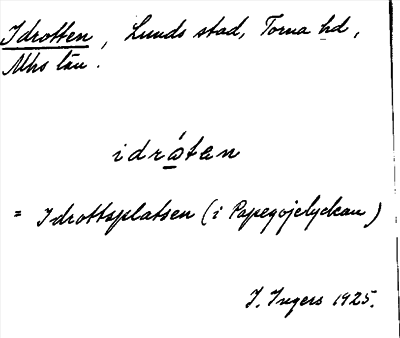 Idrotten, Lunds stad, Torna hd,
Mhs län.
idråtan
= Idrottsplatsen (i Papegojelyckan)
I. Ingers 1925.